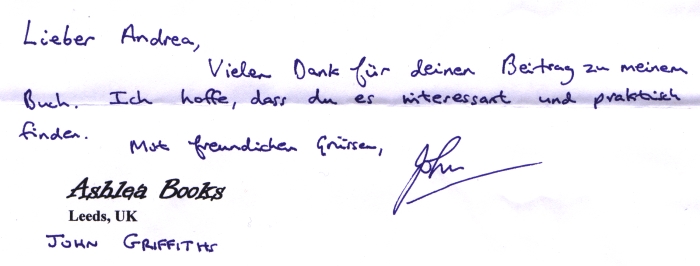 Lieber Andrea,
Vielen Dank für deinen Beitrag zu meinem
Buch. Ich hoffe, dass du es interessant und praktisch
finden.
Mit freundlichen Grüssen, John
Ashlea Books
Leeds, UK
JOHN GRIFFITHS